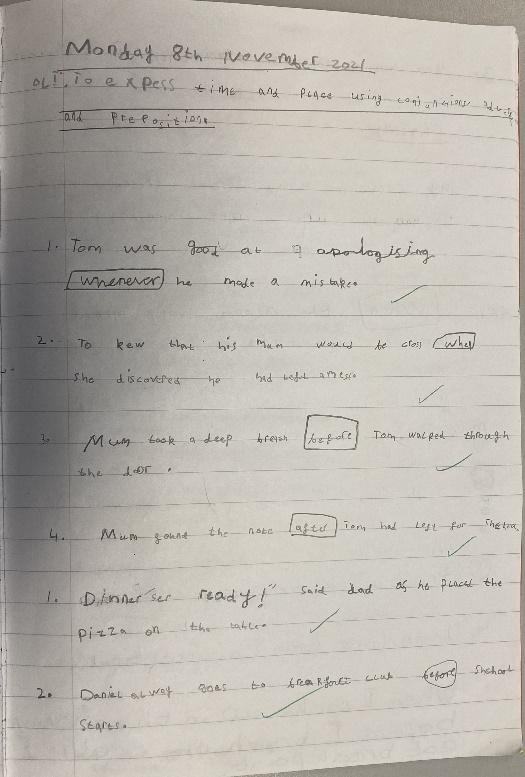 Monday 8th November 2021
OLI: To expess time and place using
and Prepositions
1. Tom was good at apologising
whenever he made a mistake.
2. To kew that his mum would be cross when
she discovered he had left
3. Mum took a deep breath before Tom walked through
the door.
4. Mum found the note after Tom had left for
1. Dinner ready!" said dad as he placed the
pizza on the table.
2. Daniel alway goes to club before
starts.